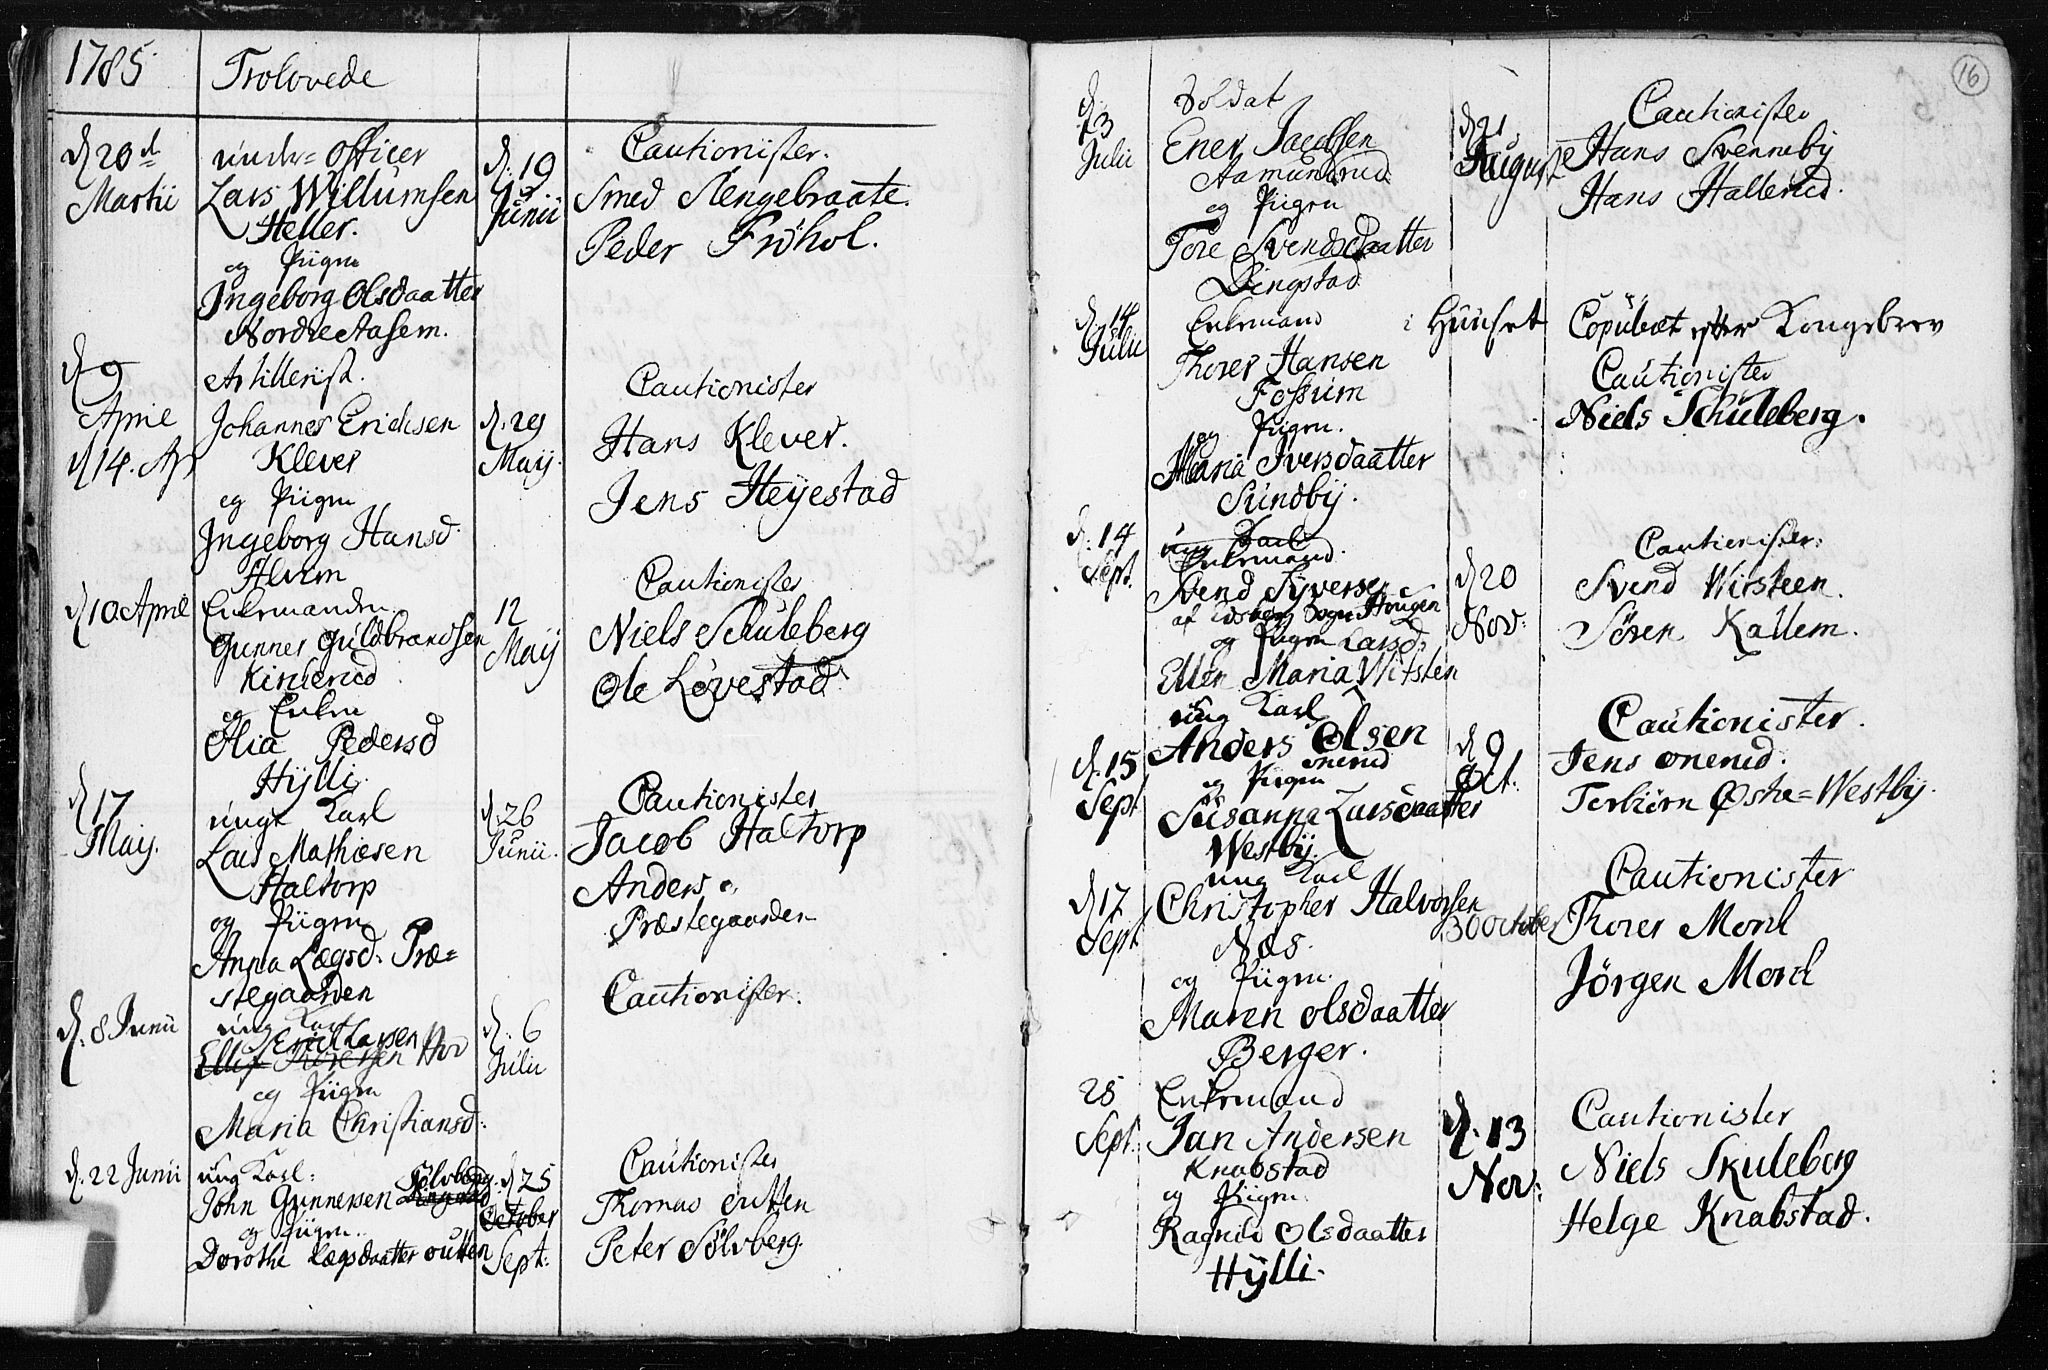 1785
Trolovede
d 20 d
Martii
under= Officer
Lars Willumsen
Heller.
og Piigen
Ingeborg Olsdaatter
Nordre Aasem.
d. 19
Junii
Cautionister.
Smed Slengebraate.
Peder Frøhol.
d 9
April
d 14. Apr
Artillerist.
Johannes Erichsen
Klever
og Piigen
Ingeborg Hansd.
Alvim
d. 29
Maij.
Cautionister
Hans Klever.
Jens Heijestad
d 10 April
Enkemanden
Gunner Guldbrandsen
Kinderud
og Enken
Olia Pedersd
Hijlli.
12
Maij
Cautionister
Niels Schuleberg
Ole Løvestad
d 17
Maij.
unge Karl
Lars Mathiesen
Haltorp
og Piigen
Anna Lægsd. Præ=
stegaarden
d. 26
Junii.
Cautionister
Jacob Haltorp
Anders
Præstegaarden
d. 8 Junii
ung Karl
Erich Larsen
Ellif Thoresen Hov
og Piigen
Maria Christiansd.
d. 6
Julii
Cautionister.
d. 22 Junii
ung Karl:
Sølvberg
John Gunnersen
og Piigen.
Dorothe Lægsdaatter Outten
d 25
October
Sept:
Cautionister
Thomas Outten
Peter Sølvberg.
16
d. 3
Julii
Soldat
Ener Jacobsen
Aamundrud
og Piigen
Tore Svendsdaatter
Dingstad
d 21
Auguste
Cautionister
Hans Svennebij
Hans Hallerud.
d. 14
Julii
Enkemand
Thorer Hansen
Fossum
og Piigen.
Maria Iversdaatter
Sundbij.
i Huuset
Copuleret efter Kongebrev
Cautionister
Niels Schuleberg.
d. 14
Sept.
ung Karl
Enkemand.
Svend Syversen
af Sogn Haugen
og Piigen Larsd.
Ellen Maria Witsten
d 20
Nov:
Cautionister:
Svend Witsteen.
Søren Kallem.
d. 15
Sept
ung Karl
Anders Olsen
Onerud
og Piigen
Susanna Larsdaatter
Westbij.
d 9
Oct:
Cautionister.
Jens Onerud.
Terbiørn Østre=Westbij.
d 17
Sept
ung Karl
Christopher Halvorsen
Næs.
og Piigen.
Maren Olsdaatter
Berger.
30 October
Cautionister
Thorer Morl
Jørgen Morl
25
Sept:
Enkemand
Jan Andersen
Knabstad
og Piigen.
Ragnild Olsdaatter
Hijlli.
d. 13
Nov:
Cautionister
Niels Skuleberg
Helge Knabstad.